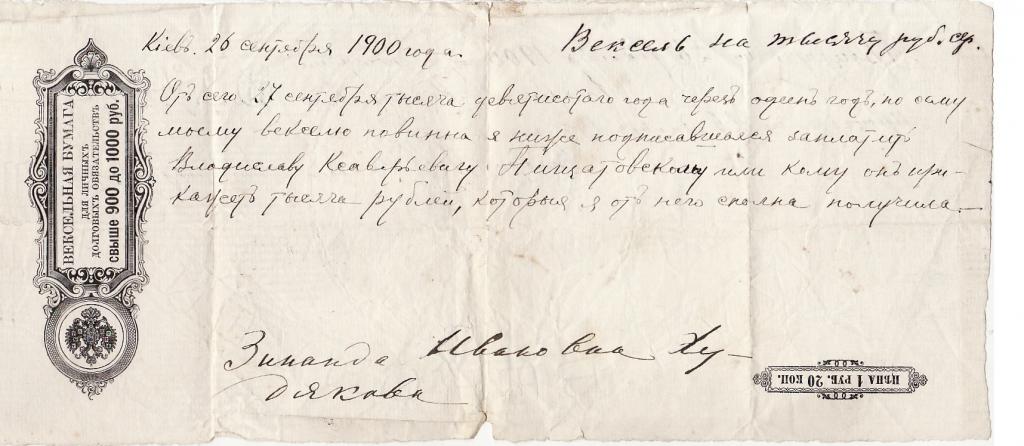 Кіевъ. 26 сентября 1900 года.
Вексель на тысячу руб. ср.
Отъ сего 27 сентября тысяча девятисотаго года черезъ одинъ годъ, по сему
моему векселю повинна я ниже подписавшаяся заплатить
Владиславу Ксаверьевичу или кому онъ при-
кажетъ тысяча рублей, которыя я отъ него сполна получила.—
Зинаида Ивановна Ху-
дякова
ВЕКСЕЛЬНАЯ БУМАГА
ДЛЯ ЛИЧНЫХЪ
ДОЛГОВЫХЪ ОБЯЗАТЕЛЬСТВЪ
СВЫШЕ 900 ДО 1000 РУБ.
ЦѢНА 1 РУБ. 20 КОП.